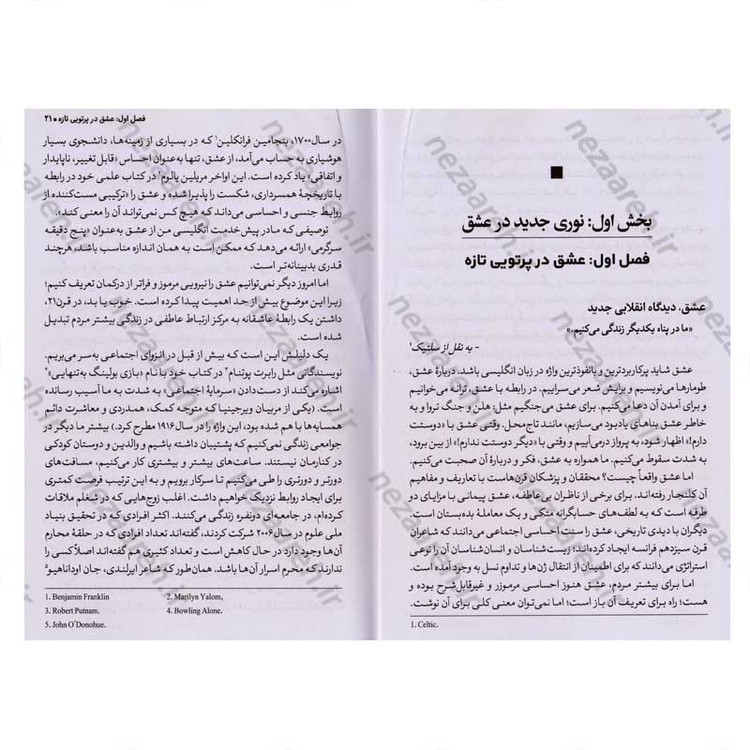 بخش اول: نوری جدید در عشق
فصل اول: عشق در پرتویی تازه
عشق، دیدگاه انقلابی جدید
«ما در پناه یکدیگر زندگی می‌کنیم.»
- به نقل از سلتیک¹
عشق شاید پرکاربردترین و بانفوذترین واژه در زبان انگلیسی باشد. دربارهٔ عشق،
طومارها می‌نویسیم و برایش شعر می‌سراییم. در رابطه با عشق، ترانه می‌خوانیم
و برای آمدن آن دعا می‌کنیم. برای عشق می‌جنگیم مثل: هلن و جنگ تروا و به
خاطر عشق بناهای یادبود می‌سازیم، مانند تاج‌محل. وقتی عشق با «دوستت
دارم!» اظهار شود، به پرواز درمی‌آییم و وقتی با «دیگر دوستت ندارم!» از بین برود،
به شدت سقوط می‌کنیم. ما همواره به عشق، فکر و دربارهٔ آن صحبت می‌کنیم.
اما عشق واقعاً چیست؟ محققان و پزشکان قرن‌هاست با تعاریف و مفاهیم
آن کلنجار رفته‌اند. برای برخی از ناظران بی‌عاطفه، عشق پیمانی با مزایای دو
طرفه است که به لطف‌های حسابگرانه متکی و یک معاملهٔ بده‌بستان است.
دیگران با دیدی تاریخی، عشق را سنت احساسی اجتماعی می‌دانند که شاعران
قرن سیزدهم فرانسه ایجاد کرده‌اند؛ زیست‌شناسان و انسان‌شناسان آن را نوعی
استراتژی می‌دانند که برای اطمینان از انتقال ژن‌ها و تداوم نسل به وجود آمده است.
اما برای بیشتر مردم، عشق هنوز احساسی مرموزر و غیرقابل‌شرح بوده و
هست؛ راه برای تعریف آن باز است؛ اما نمی‌توان معنی کلی برای آن نوشت.
1. Celtic.
فصل اول: عشق در پرتویی تازه ■ ۲۱
در سال ۱۷۰۰، بنجامین فرانکلین¹ که در بسیاری از زمینه‌ها، دانشجوی بسیار
هوشیاری به حساب می‌آمد، از عشق، تنها به‌عنوان احساس «قابل تغییر، ناپایدار
و اتفاقی» یاد کرده است. این اواخر مریلین یالوم² در کتاب علمی خود در رابطه
با تاریخچهٔ همسرداری، شکست را پذیرا شده و عشق را «ترکیبی مست‌کننده از
روابط جنسی و احساسی می‌داند که هیچ کس نمی‌تواند آن را معنی کند».
توصیفی که مادر پیش‌خدمت انگلیسی من از عشق به‌عنوان «پنج دقیقه
سرگرمی» ارائه می‌دهد که ممکن است به همان اندازه مناسب باشد، هرچند
قدری بدبینانه‌تر است.
اما امروز دیگر نمی‌توانیم عشق را نیرویی مرموز و فراتر از درکمان تعریف کنیم؛
زیرا این موضوع بیش از حد اهمیت پیدا کرده است. خوب یا بد، در قرن ۲۱،
داشتن یک رابطهٔ عاشقانه به مرکز ارتباط عاطفی در زندگی بیشتر مردم تبدیل
شده است.
یک دلیلش این است که بیش از قبل در انزوای اجتماعی به‌سر می‌بریم.
نویسندگانی مثل رابرت پوتنام³ در کتاب خود با نام «بازی بولینگ به‌تنهایی⁴»
اشاره می‌کند از دست‌دادن «سرمایهٔ اجتماعی» به شدت به ما آسیب رسانده
است. (یکی از مربیان ویرجینیا که متوجه کمک، همدردی و معاشرت دائم
همسایه‌ها با هم شده بود، این واژه را در سال ۱۹۱۶ مطرح کرد.) بیشتر ما دیگر در
جوامعی زندگی نمی‌کنیم که پشتیبان داشته باشیم و والدین و دوستان کودکی
در کنارمان نیستند. ساعت‌های بیشتر و بیشتری کار می‌کنیم، مسافت‌های
دورتر و دورتری را طی می‌کنیم تا سرکار برویم و به این ترتیب فرصت کمتری
برای ایجاد روابط نزدیک خواهیم داشت. اغلب زوج‌هایی که در شغلم ملاقات
کرده‌ام، در جامعه‌ای دونفره زندگی می‌کنند. اکثر افرادی که در تحقیق بنیاد
ملی علوم در سال ۲۰۰۶ شرکت کردند، گفته‌اند تعداد افرادی که در حلقهٔ محارم
آن‌ها وجود دارد در حال کاهش است و تعداد کثیری هم گفته‌اند اصلاً کسی را
ندارند که محرم اسرار آن‌ها باشد. همان‌طور که شاعر ایرلندی، جان اوداناهیو⁵
1. Benjamin Franklin 2. Marilyn Yalom,
3. Robert Putnam. 4. Bowling Alone.
5. John O'Donohue.
nezaareh.ir